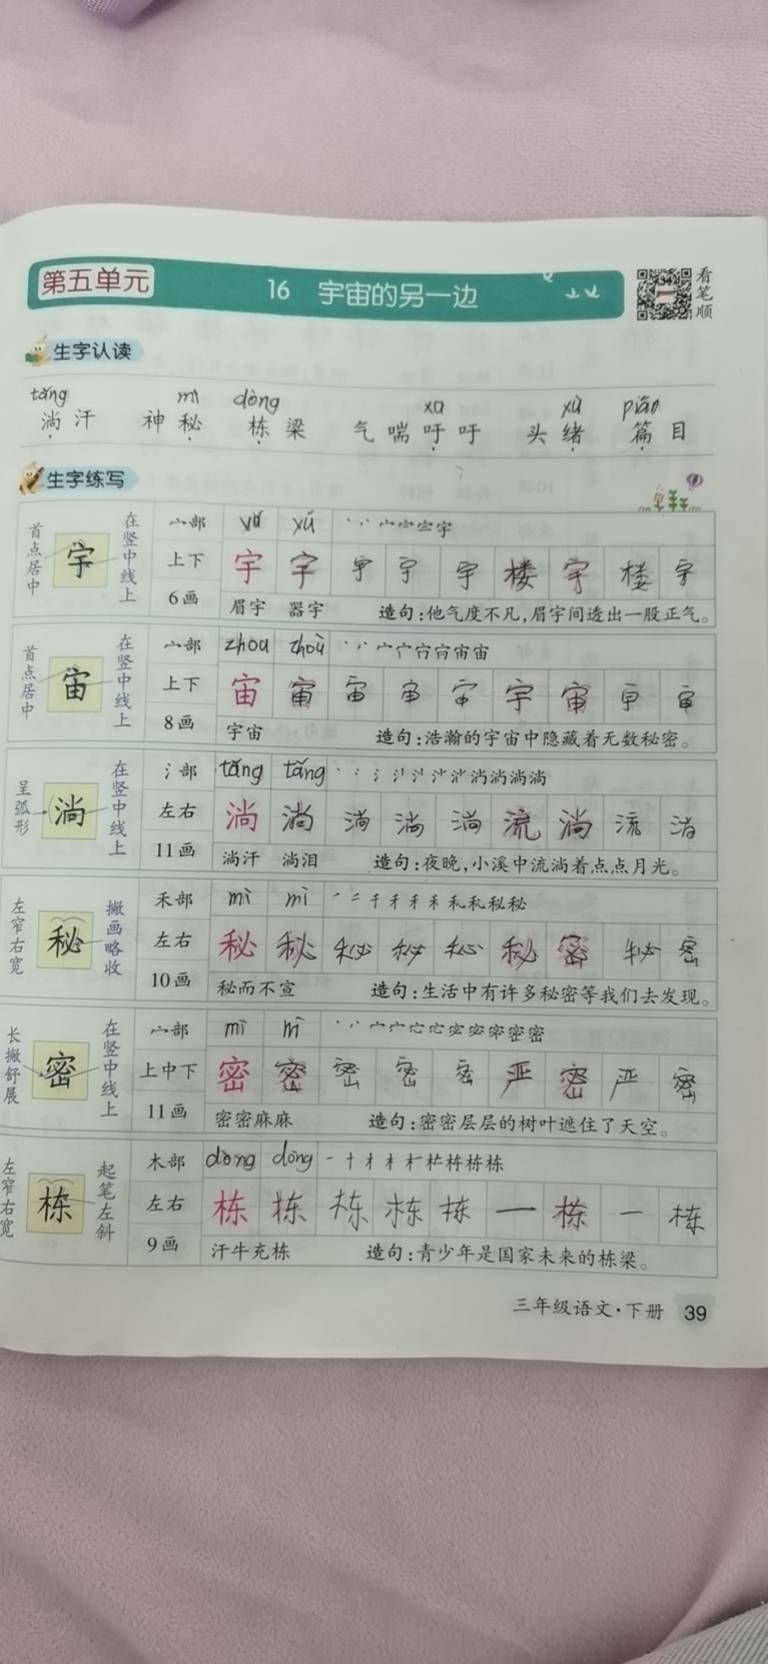 第五单元
16 宇宙的另一边
看笔顺
生字认读
tǎng mì dòng xū xù piān
淌汗 神秘 栋梁 气喘吁吁 头绪 篇目
生字练写
首点居中 宇 在竖中线上
宀部 上下 6画
宇 宇 宇 宇 宇 楼 宇 楼 宇
眉宇 器宇 造句:他气度不凡,眉宇间透出一股正气。
首点居中 宙 在竖中线上
宀部 上下 8画
zhou zhoù
宙 宙 宙 宙 宙 宇 宙 宙 宙
宇宙 造句:浩瀚的宇宙中隐藏着无数秘密。
呈弧形 淌 在竖中线上
氵部 左右 11画
tǎng tǎng
淌 淌 淌 淌 淌 流 淌 流 淌
淌汗 淌泪 造句:夜晚,小溪中流淌着点点月光。
左窄右宽 秘 撇画略收
禾部 左右 10画
mì mì
秘 秘 秘 秘 秘 秘 密 秘 密
秘而不宣 造句:生活中有许多秘密等我们去发现。
长撇舒展 密 在竖中线上
宀部 上中下 11画
mì mì
密 密 密 密 密 严 密 严 密
密密麻麻 造句:密密层层的树叶遮住了天空。
左窄右宽 栋 起笔左斜
木部 左右 9画
dòng dòng
栋 栋 栋 栋 栋 一 栋 一 栋
汗牛充栋 造句:青少年是国家未来的栋梁。
三年级语文·下册 39